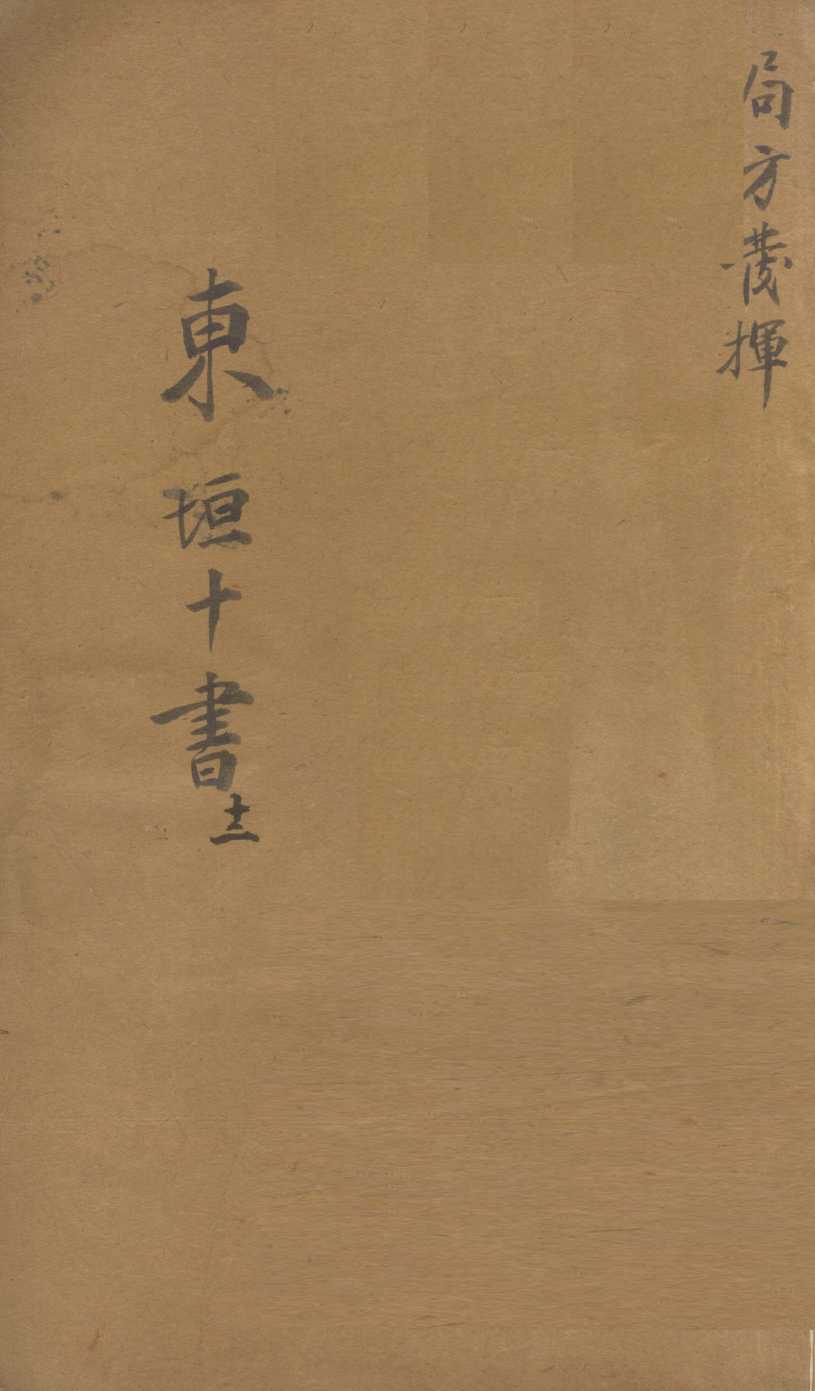 局方發揮
東垣十書
十二